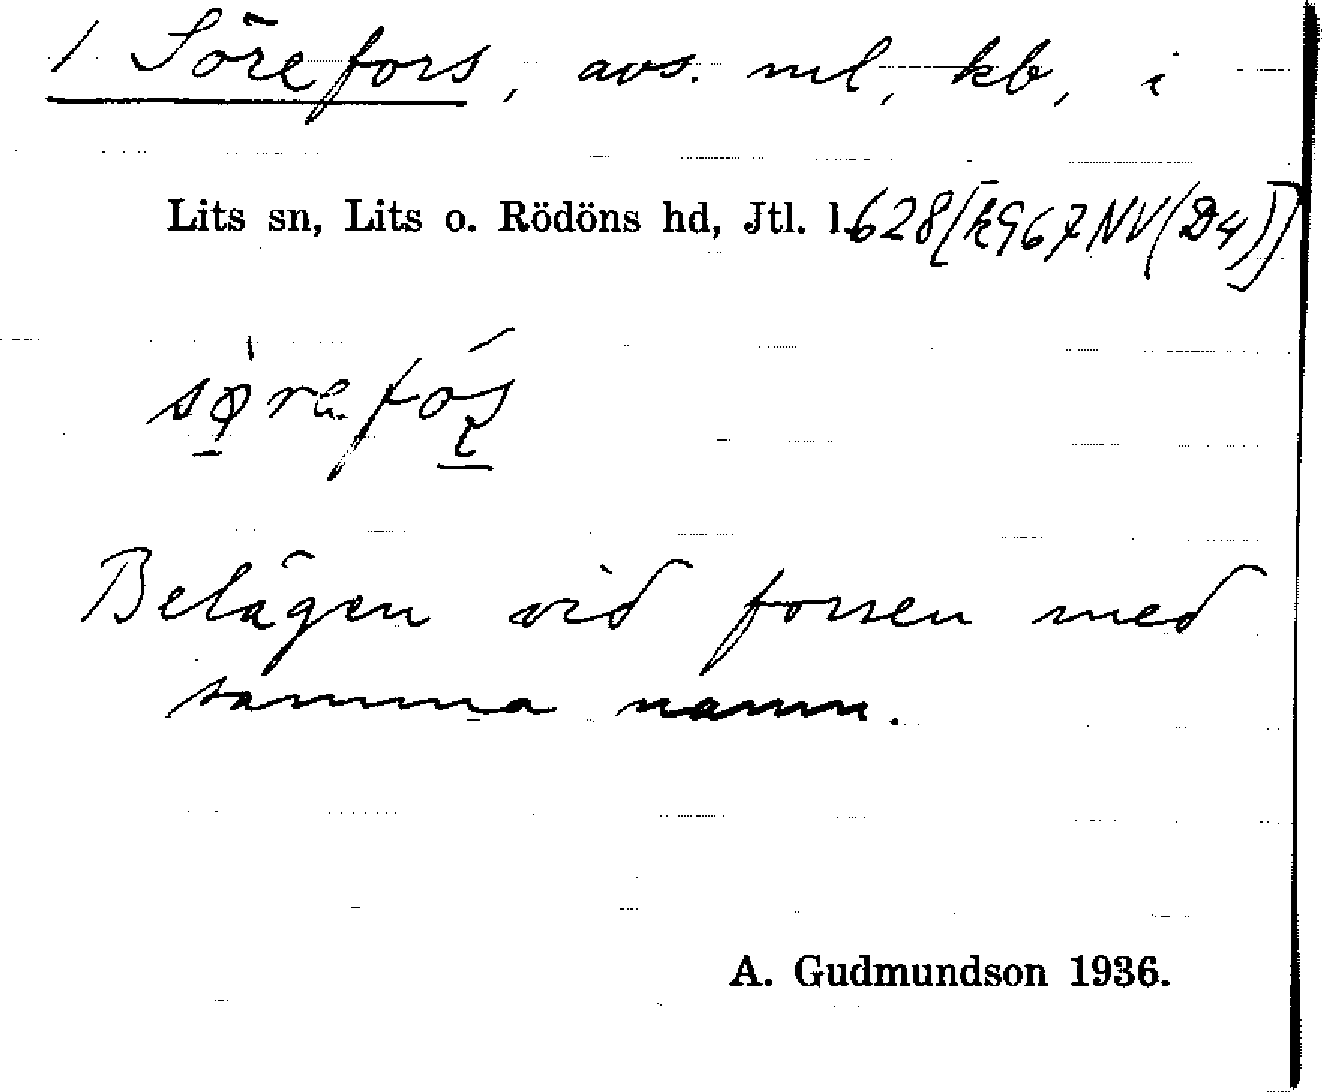 1 Sörefors, avs. ml, kb, i
Lits sn, Lits o. Rödöns hd, Jtl. l. 628[k967NV(D4)]
Belägen vid forsen med
samma namn.
A. Gudmundson 1936.